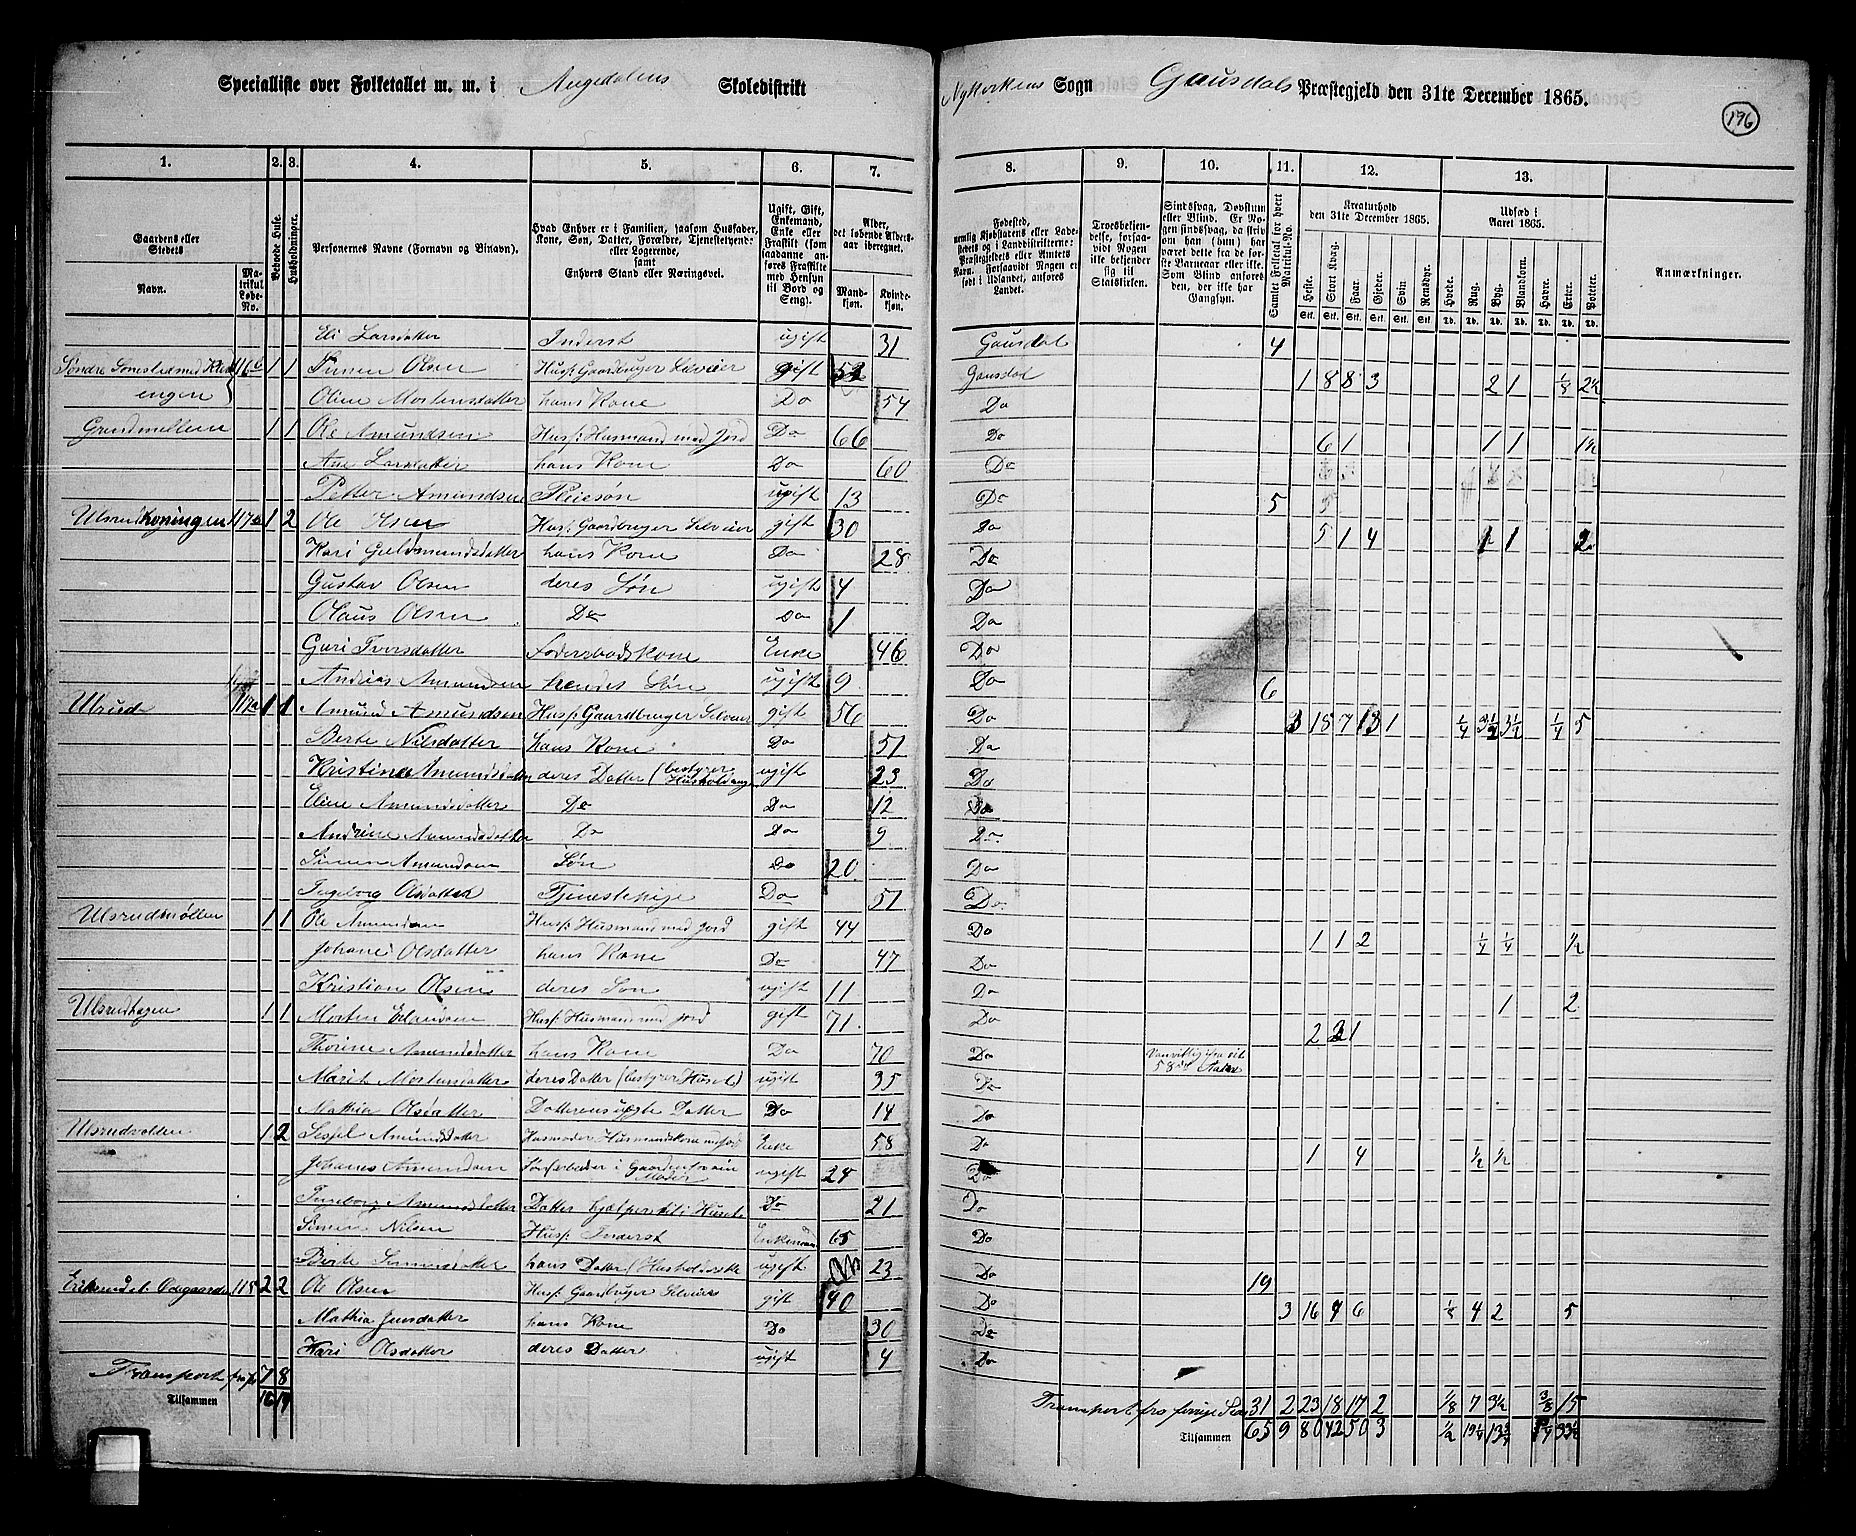 Specialliste over Folketallet m. m. i Augedalens Skoledistrikt Nykirkens Sogn Gausdals Præstegjeld den 31te December 1865.
196
1. 2. 3. 4. 5. 6. 7. 8. 9. 10. 11. 12. 13.
Gaardens eller Stedets
Navn.
Matrikul Løbe-No.
Beboede Huse.
Husholdninger.
Personernes Navne (Fornavn og Binavn).
Hvad Enhver er i Familien, saasom Husfader, Kone, Søn, Datter, Forældre, Tjenstetyende eller Logerende, samt Enhvers Stand eller Næringsvei.
Ugift, Gift, Enkemand, Enke eller Fraskilt (som saadanne anføres Fraskilte med Hensyn til Bord og Seng).
Alder, det løbende Aldersaar iberegnet.
Mandkjøn. Kvindekjøn.
Fødested, nemlig Kjøbstadens eller Ladestedets og i Landdistrikterne: Præstegjeldets eller Amtets Navn. Forsaavidt Nogen er født i Udlandet, anføres Landet.
Troesbekjendelse, forsaavidt Nogen ikke bekjender sig til Statskirken.
Sindssvag, Døvstum eller Blind. Er Nogen sindssvag, da skriv om han (hun) har været dette fra de første Barneaar eller ikke. Som Blind anføres den, der ikke har Gangsyn.
Samlet Folketal for hvert Matrikul-No.
Kreaturhold den 31te December 1865.
Heste. Stort Kvæg. Faar. Gjeder. Svin. Rensdyr.
Udsæd i Aaret 1865.
Hvede. Rug. Byg. Blandkorn. Havre. Erter. Poteter.
Anmærkninger.
Eli Larsdatter Inderst ugift 31 Gausdal 4
Søndre 116 1 1 Simen Olsen Husf. Gaardbruger Selveier gift Gausdal 1 8 8 3 2 1 1/8 2½
engen Oline Mortensdatter hans Kone Do 54 Do
1 1 Ole Amundsen Husf. Husmand med Jord Do 66 Do 6 1 1 1 1½
Ane Larsdatter hans Kone Do 60 Do
Petter Amundsen Pleiesøn ugift 13 Do 5
117 1 2 Ole Olsen Husf. Gaardbruger Selveier gift 30 Do 5 1 4 1 1 2
Kari Guldmundsdatter hans Kone Do 28 Do
Gustav Olsen deres Søn ugift 4 Do
Olaus Olsen Do Do 1 Do
Guri Iversdatter Foderaadskone Enke 46 Do
Andreas Amundsen hendes Søn ugift 9 Do 6
Ulsrud 117a 1 1 Amund Amundsen Husf. Gaardbruger Selveier gift 56 Do 3 18 7 13 1 ¼ 3½ 3½ ¼ 5
Berte Nilsdatter hans Kone Do 51 Do
Kristine Amundsdatter deres Datter (bestyrer Husholdningen ugift 23 Do
Eline Amundsdatter Do Do 12 Do
Andrine Amundsdatter Do Do 9 Do
Simen Amundsen Søn Do 20 Do
Ingeborg Olsdatter Tjenestepige Do 51 Do
Ulsrudmøllen 1 1 Ole Amundsen Husf. Husmand med Jord gift 44 Do 1 1 2 ¼ ¼ ½
Johane Olsdatter hans Kone Do 47 Do
Kristian Olsen deres Søn ugift 11 Do
Ulsrudhagen 1 1 Morten Erlandsen Husf. Husmand med Jord gift 71 Do 2 2 1 1 2
Thorine Amundsdatter hans Kone Do 70 Do Vanvittig fra sit 58de Aar
Marit Mortensdatter deres Datter (bestyrer Huset) ugift 35 Do
Mathia Olsdatter Datterens uægte Datter Do 14 Do
Ulsrudvolden 1 2 Sessel Amundsdatter Husmoder Husmandskone med Jord Enke 58 Do 1 4 ½ ½
Johanes Amundsen Søn arbeider i Gaarden for sin Moder ugift 24 Do
Ingeborg Amundsdatter Datter hjælper til i Huset Do 21 Do
Simen Nilsen Husf. Inderst Enkemand 65 Do
Berte Simensdatter hans Datter (Husholderske ugift 23 Do 19
118 2 2 Ole Olsen Husf. Gaardbruger Selveier gift 40 Do 3 16 9 6 1/8 4 2 5
Mathia Jensdatter hans Kone Do 30 Do
Kari Olsdatter deres Datter ugift 4 Do
Transport 7 8 Transport fra forrige Side 31 2 23 18 17 2 1/8 7 3½ 3/8 15
Tilsammen 16 19 Tilsammen 65 9 80 42 50 3 ½